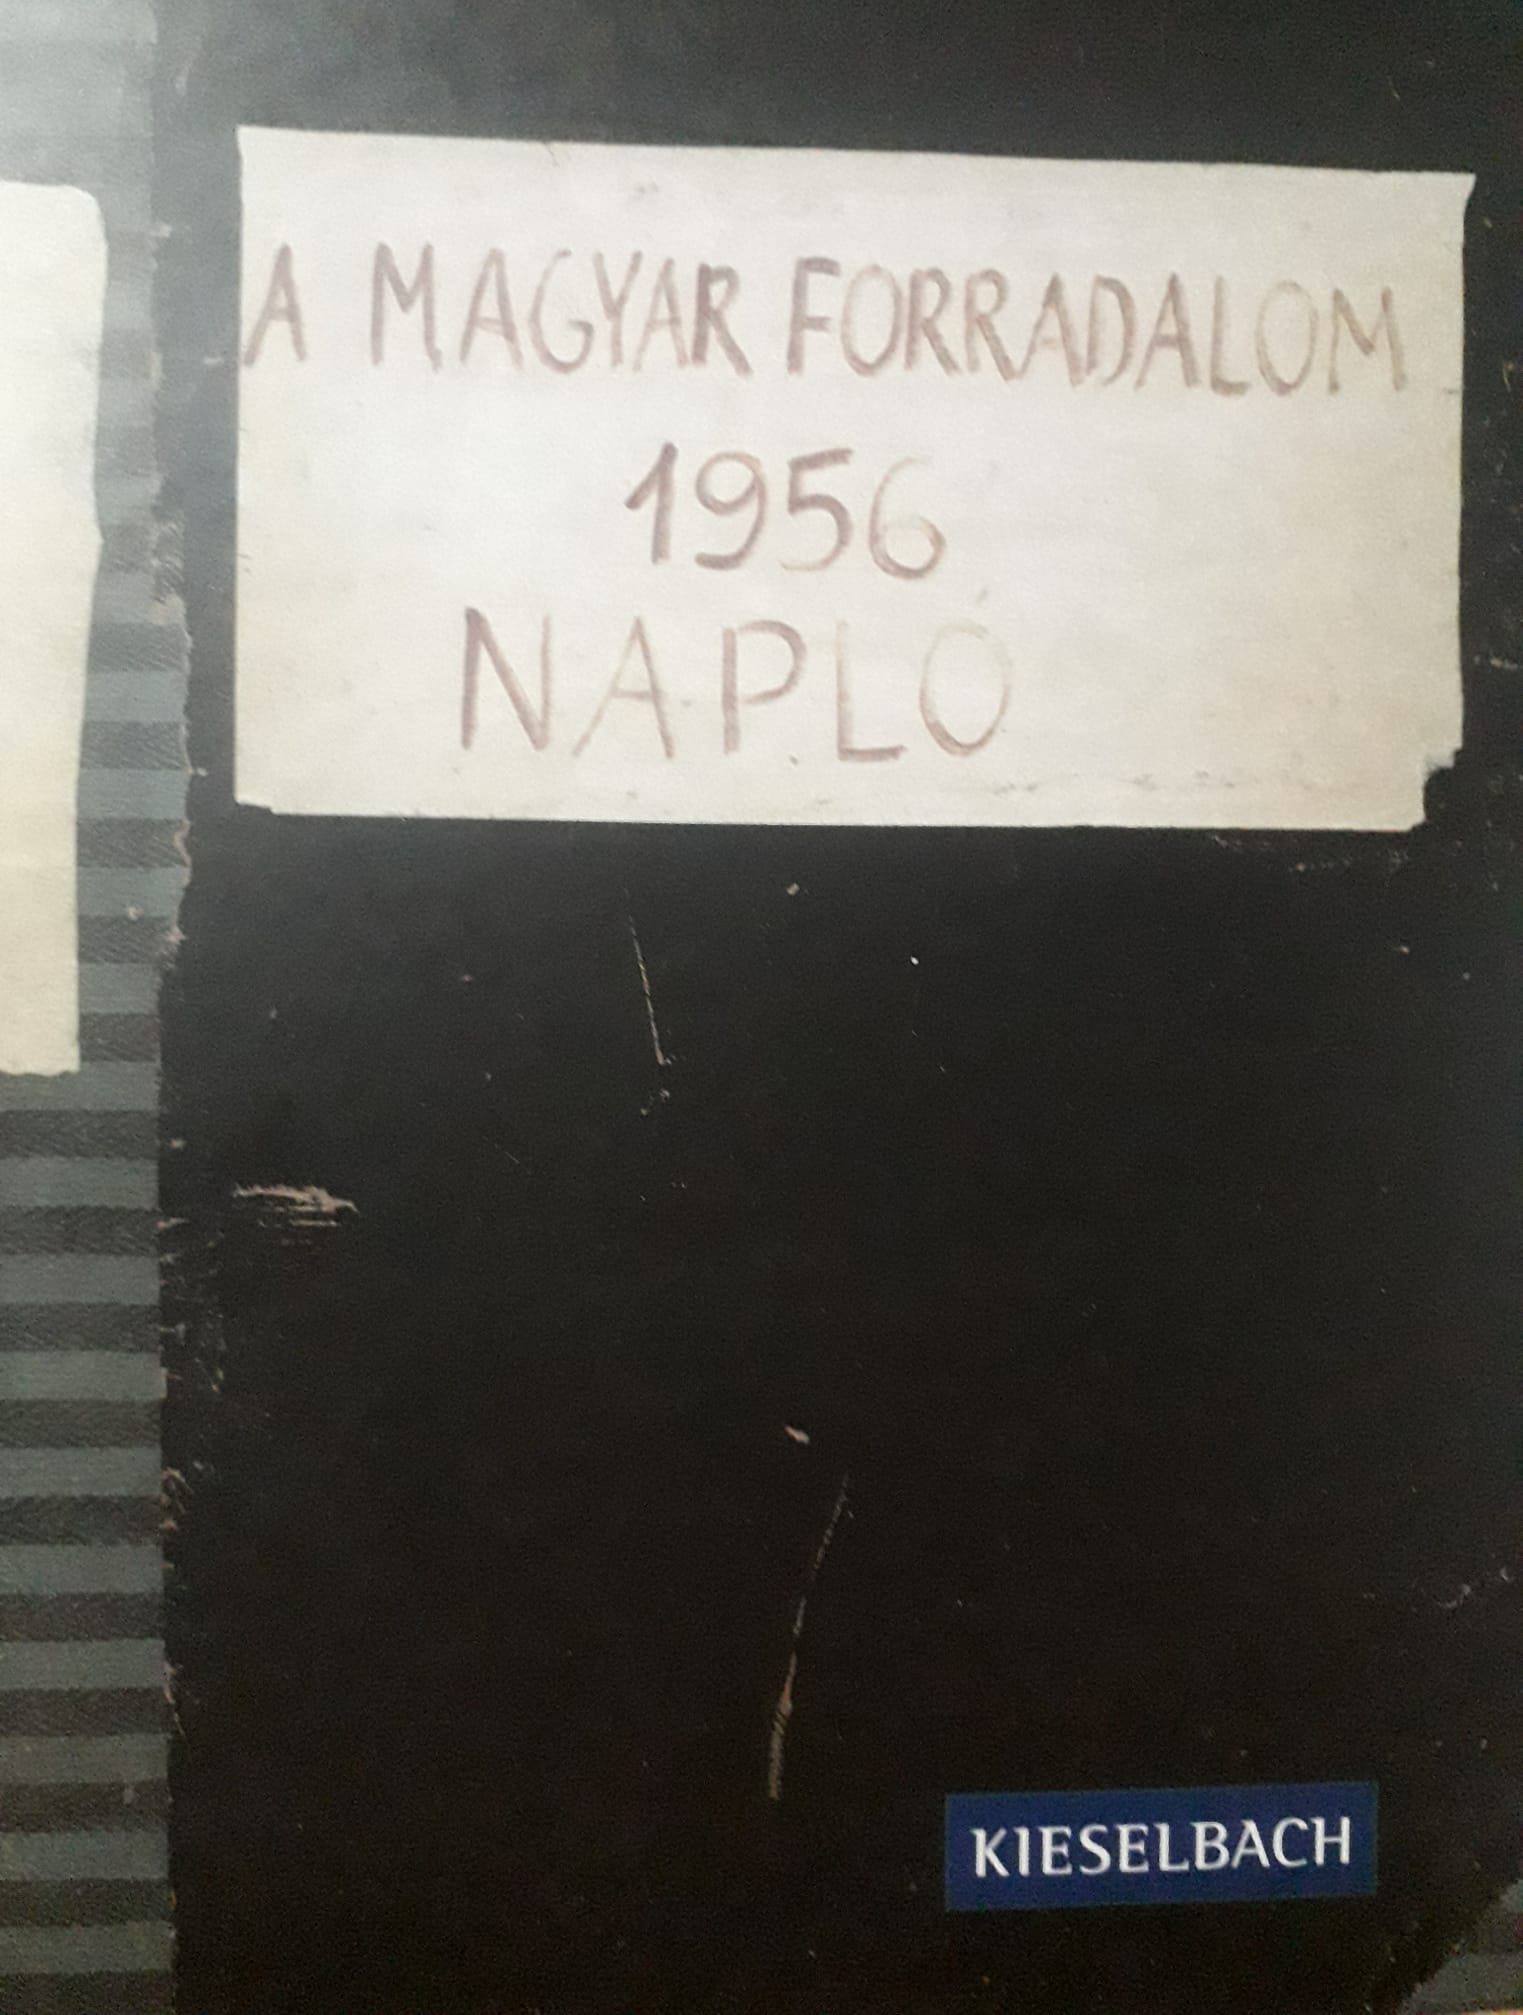 A MAGYAR FORRADALOM
1956
NAPLÓ
KIESELBACH